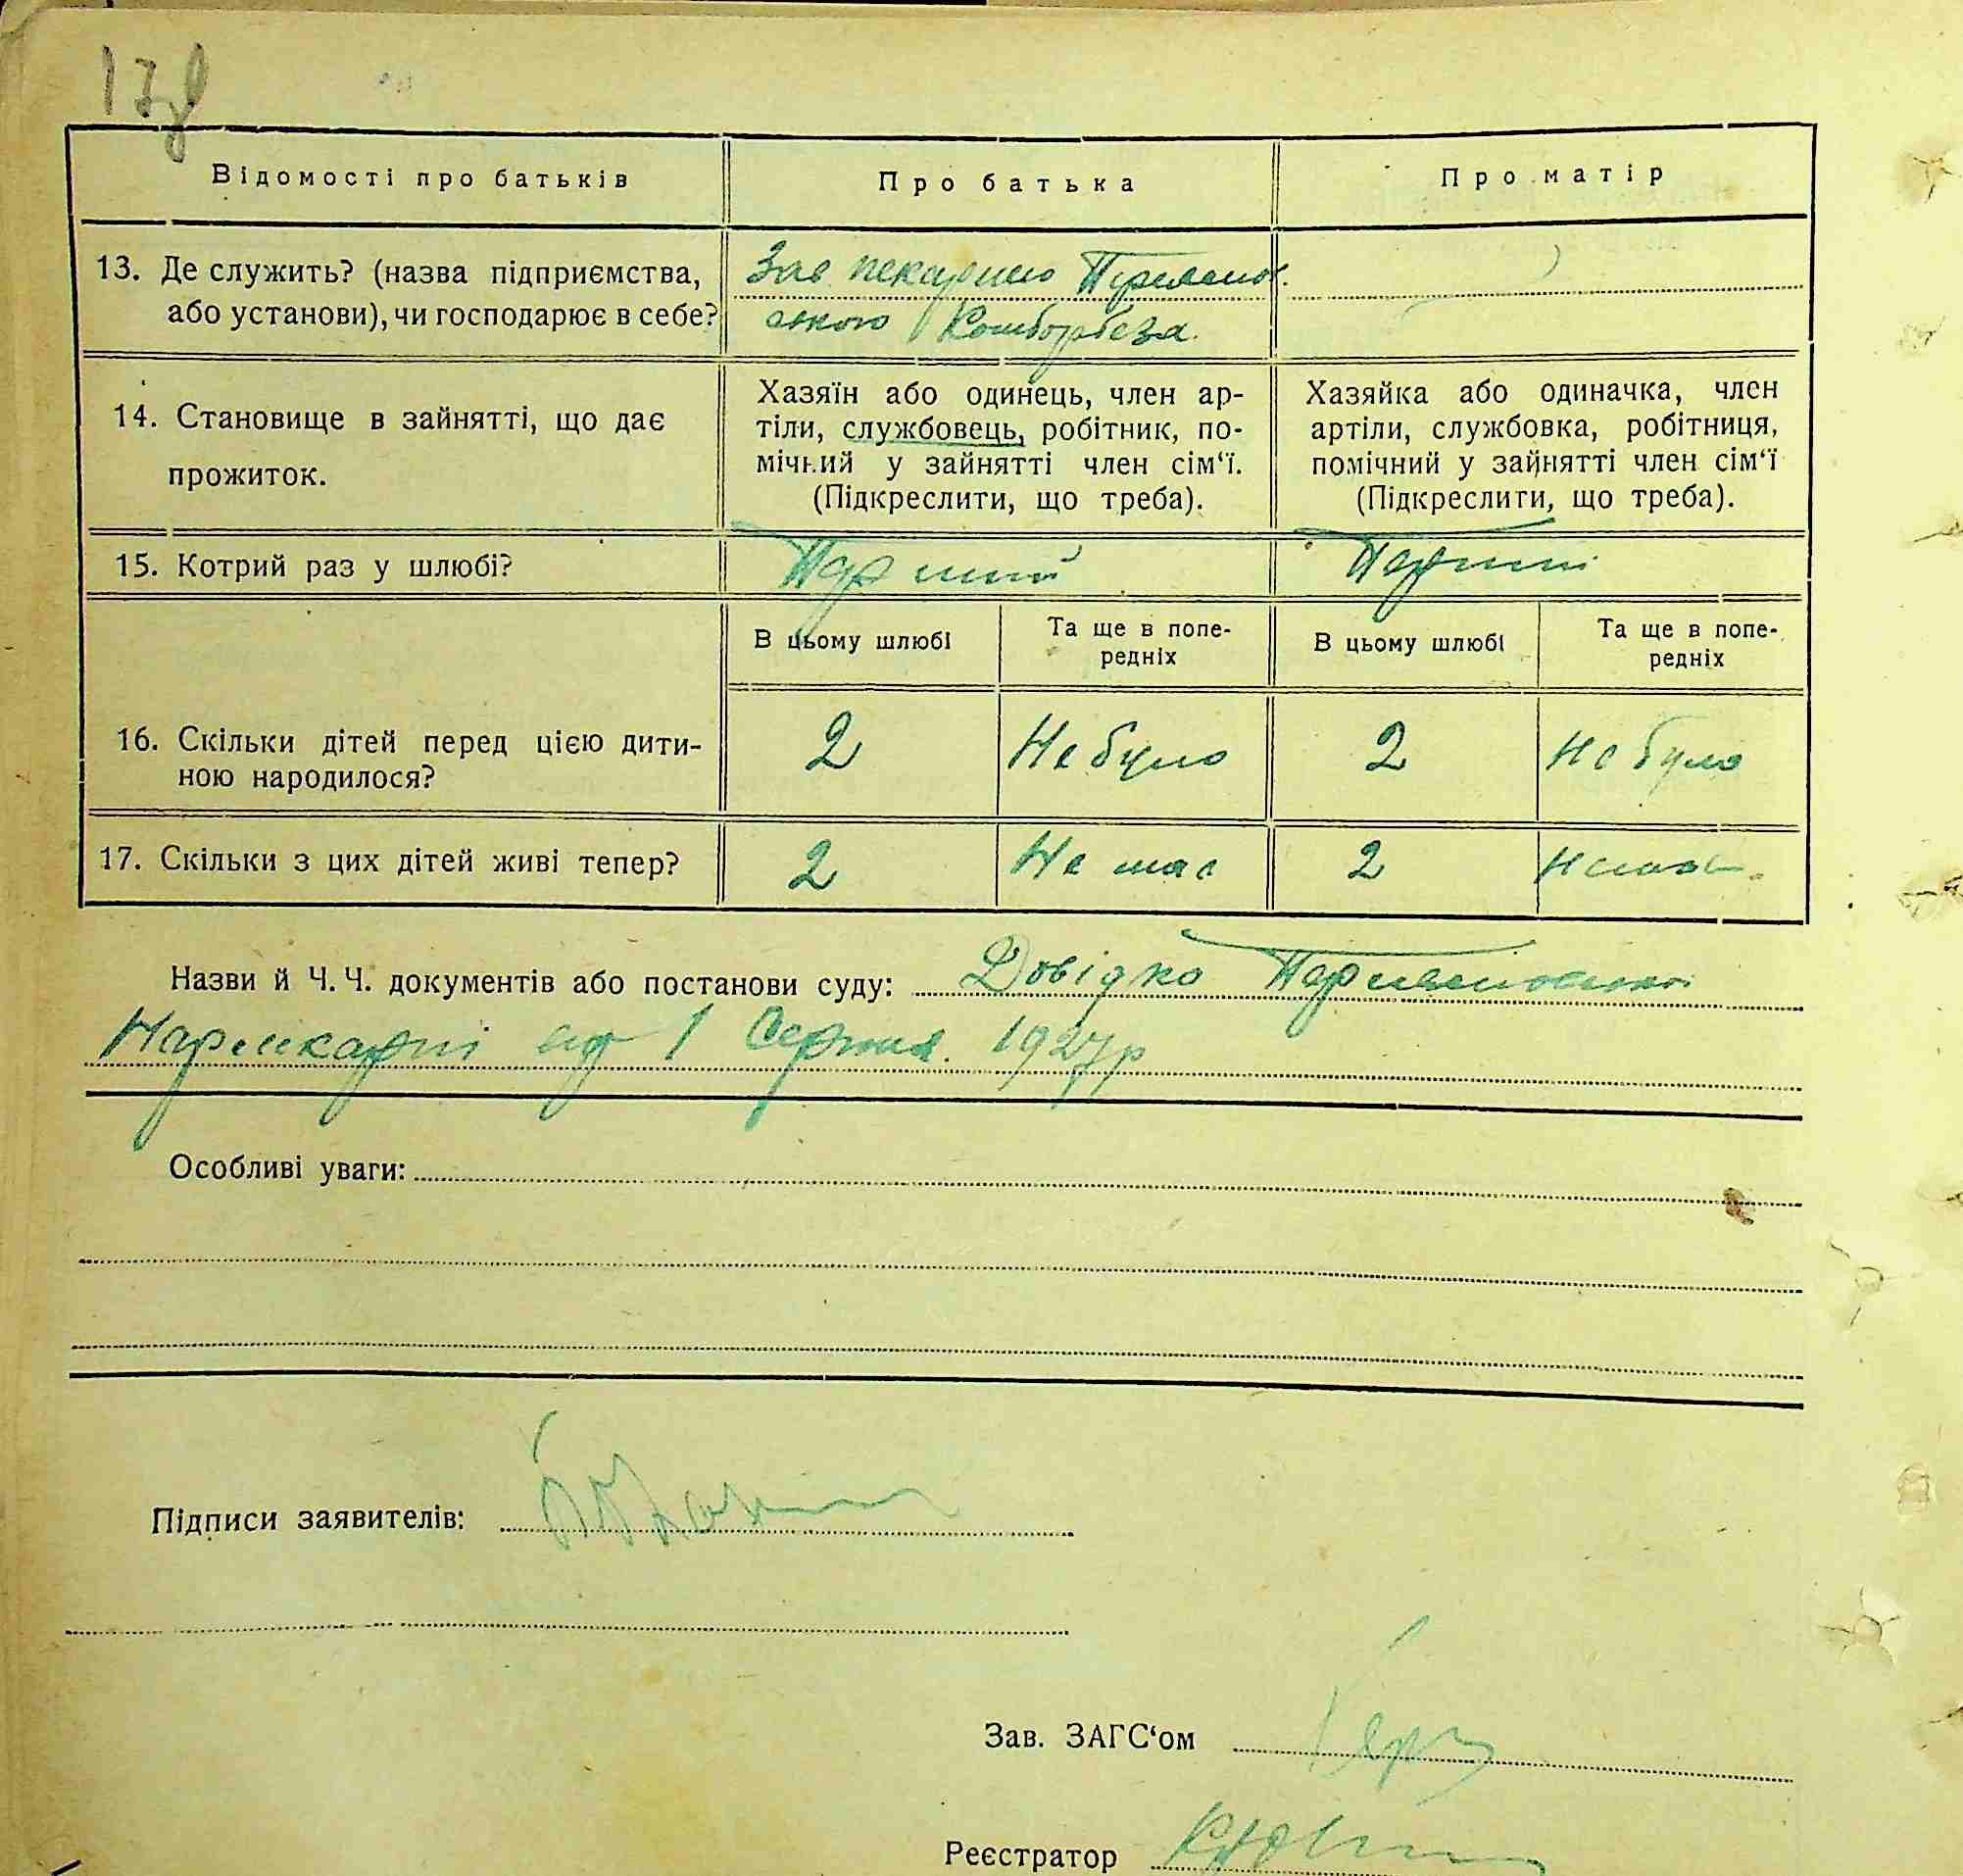 Відомості про батьків
Про батька
Про матір
13. Де служить? (назва підприємства,
або установи), чи господарює в себе?
Зав. пекарнею
ського Комборбеза
14. Становище в зайнятті, що дає
прожиток.
Хазяїн або одинець, член ар-
тіли, службовець, робітник, по-
мічний у зайнятті член сім‘ї.
(Підкреслити, що треба).
Хазяйка або одиначка, член
артіли, службовка, робітниця,
помічний у зайнятті член сім‘ї
(Підкреслити, що треба).
15. Котрий раз у шлюбі?
Перший
Перший
В цьому шлюбі
Та ще в попе-
редніх
В цьому шлюбі
Та ще в попе-
редніх
16. Скільки дітей перед цією дити-
ною народилося?
2
Не було
2
Не було
17. Скільки з цих дітей живі тепер?
2
Не має
2
Немає
Назви й Ч. Ч. документів або постанови суду: Довідка
1 Серпня 1927 р
Особливі уваги:
Підписи заявителів:
Зав. ЗАГС‘ом
Реєстратор